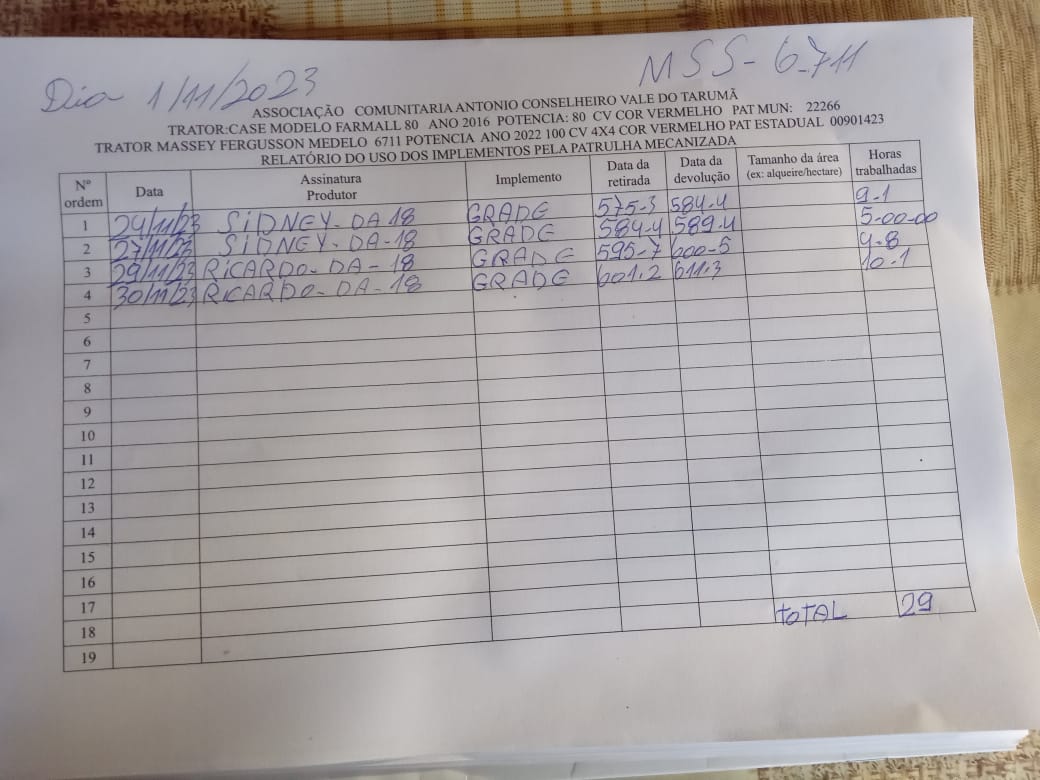 Dia 1/11/2023
MSS- 6.711
ASSOCIAÇÃO COMUNITARIA ANTONIO CONSELHEIRO VALE DO TARUMÃ
TRATOR:CASE MODELO FARMALL 80 ANO 2016 POTENCIA: 80 CV COR VERMELHO PAT MUN: 22266
TRATOR MASSEY FERGUSSON MEDELO 6711 POTENCIA ANO 2022 100 CV 4X4 COR VERMELHO PAT ESTADUAL 00901423
RELATÓRIO DO USO DOS IMPLEMENTOS PELA PATRULHA MECANIZADA
Nº ordem Data Assinatura Produtor Implemento Data da retirada Data da devolução Tamanho da área (ex: alqueire/hectare) Horas trabalhadas
1 24/11/23 SIDNEY- DA 18 GRADE 575-3 584-4 9-1
2 27/11/23 SIDNEY- DA-18 GRADE 584-4 589-4 5-00-00
3 29/11/23 RICARDO- DA- 18 GRADE 595-7 600-5 4-8
4 30/11/23 RICARDO- DA- 18 GRADE 601-2 611-3 10-1
5
6
7
8
9
10
11
12
13
14
15
16
17
18 TOTAL 29
19